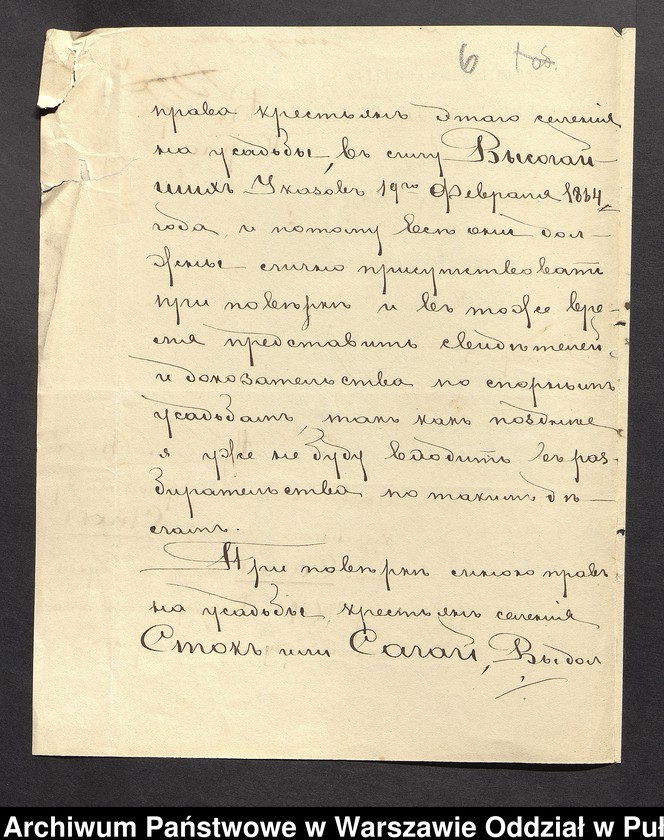 6
права крестьянъ этаго селенія
на усадьбы, въ силу Высочай-
шихъ Указовъ 19го Февраля 1864
года, и потому всѣ они дол-
жны лично присутствовать
при повѣркѣ и въ тоже вре-
мя представить свидѣтелей
и доказательства по спорнымъ
усадьбамъ, такъ какъ позднѣе
я уже не буду входить въ раз-
бирательства по такимъ дѣ-
ламъ.
При повѣркѣ мною правъ
на усадьбы крестьянъ селенія
Стокъ или
Archiwum Państwowe w Warszawie Oddział w Puł